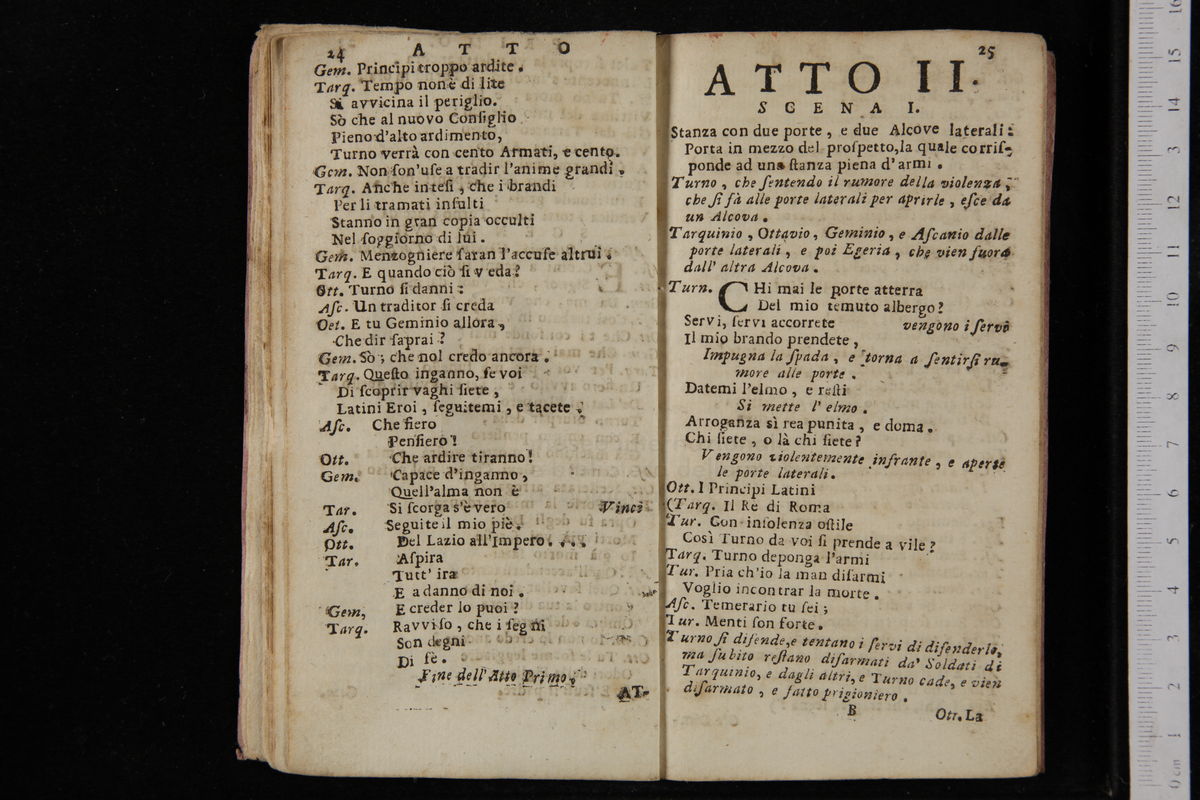 24 A T T O
Gem. Principi troppo ardite.
Tarq. Tempo non è di lite
Si avvicina il periglio.
Sò che al nuovo Conſiglio
Pieno d'alto ardimento,
Turno verrà con cento Armati, e cento.
Gem. Non ſon'uſe a tradir l'anime grandi.
Tarq. Anche inteſi, che i brandi
Per li tramati inſulti
Stanno in gran copia occulti
Nel ſoggiorno di lui.
Gem. Menzogniere faran l'accuſe altrui.
Tarq. E quando ciò ſi veda?
Ott. Turno ſi danni:
Aſc. Un traditor ſi creda
Oet. E tu Geminio allora,
Che dir ſaprai?
Gem. Sò; che nol credo ancora.
Tarq. Queſto inganno, ſe voi
Di ſcoprir vaghi ſiete,
Latini Eroi, ſeguitemi, e tacete.
Aſc. Che fiero
Penſiero!
Ott. Che ardire tiranno!
Gem. Capace d'inganno,
Quell'alma non è
Tar. Si ſcorga s'è vero Vinci
Aſc. Seguite il mio piè.
Ott. Del Lazio all'Impero....
Tar. Aſpira
Tutt' ira
E a danno di noi.
Gem, E creder lo puoi?
Tarq. Ravviſo, che i ſegni
Son degni
Di fè.
Fine dell' Atto Primo.
AT-
25
ATTO II.
SCENA I.
Stanza con due porte, e due Alcove laterali:
Porta in mezzo del proſpetto, la quale corriſ-
ponde ad una ſtanza piena d'armi.
Turno, che ſentendo il rumore della violenza,
che ſi fà alle porte laterali per aprirle, eſce da
un Alcova.
Tarquinio, Ottavio, Geminio, e Aſcanio dalle
porte laterali, e poi Egeria, che vien fuora
dall' altra Alcova.
Turn. CHi mai le porte atterra
Del mio temuto albergo?
Servi, ſervi accorrete vengono i ſervi
Il mio brando prendete,
Impugna la ſpada, e torna a ſentirſi ru-
more alle porte.
Datemi l'elmo, e reſti
Si mette l' elmo.
Arroganza sì rea punita, e doma.
Chi ſiete, o là chi ſiete?
Vengono violentemente infrante, e aperte
le porte laterali.
Ott. I Principi Latini
(Tarq. Il Re di Roma
Tur. Con inſolenza oſtile
Così Turno da voi ſi prende a vile?
Tarq. Turno deponga l'armi
Tur. Pria ch'io la man diſarmi
Voglio incontrar la morte.
Aſc. Temerario tu ſei;
Tur. Menti ſon forte.
Turno ſi difende, e tentano i ſervi di difenderlo,
ma ſubito reſtano diſarmati da' Soldati di
Tarquinio, e dagli altri, e Turno cade, e vien
diſarmato, e fatto prigioniero.
B Ott. La